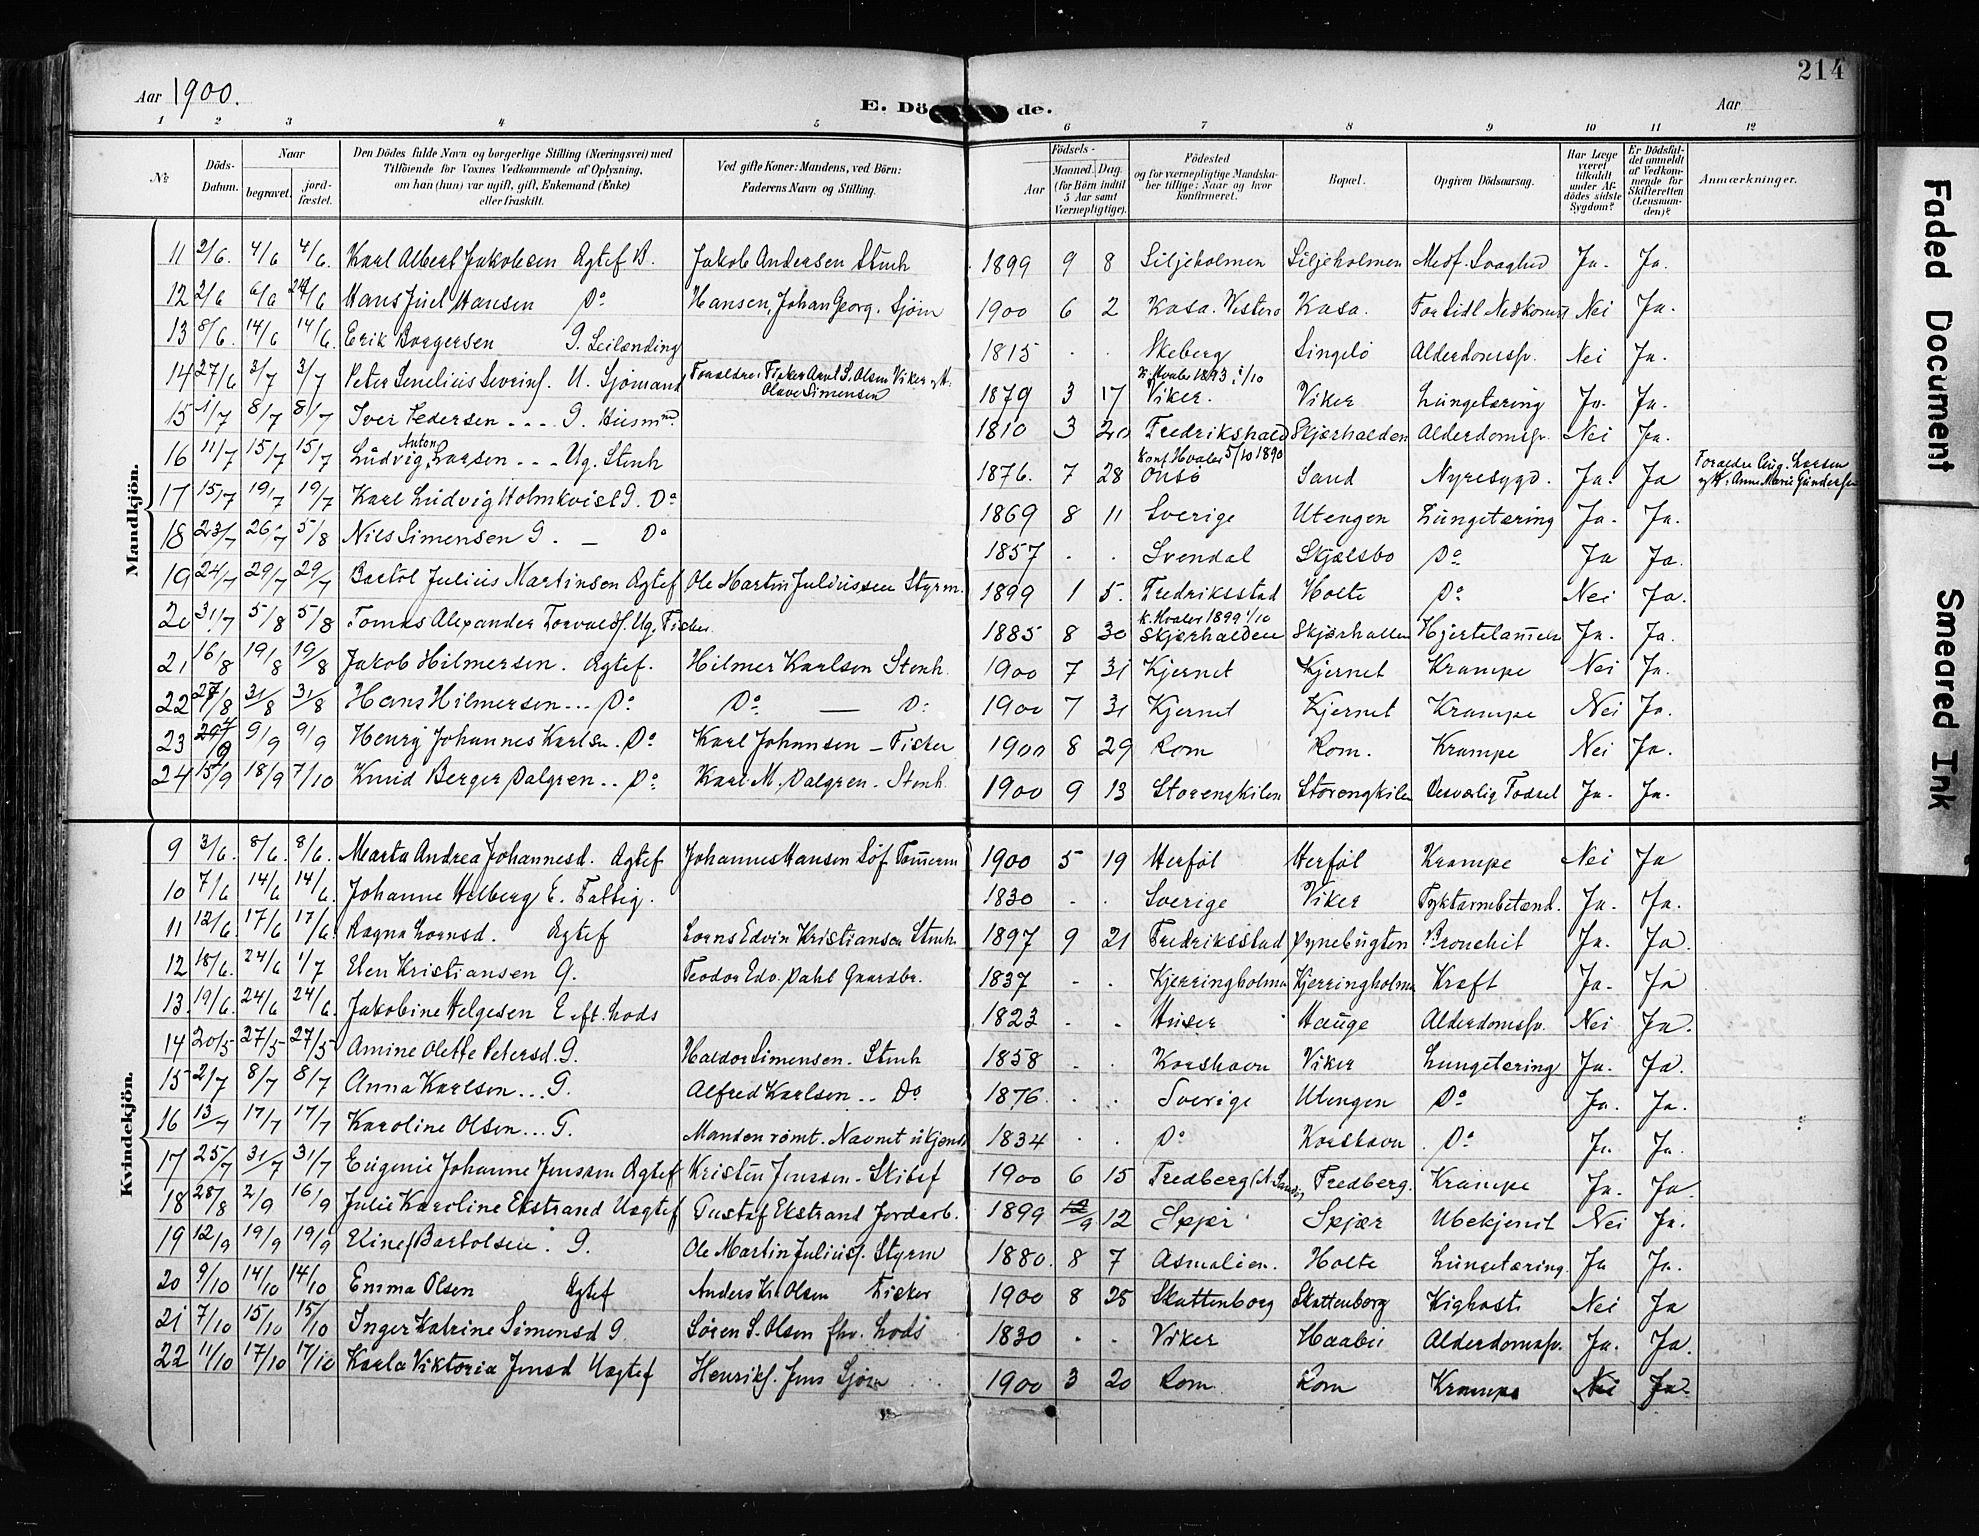 214
Aar 1900.
E. Dö de.
Aar
1 2 3 4 5 6 7 8 9 10 11 12
№
Döds-Datum.
Naar
begravet.
jord-fæstet.
Den Dödes fulde Navn og borgerlige Stilling (Næringsvei) med
Tilföiende for Voxnes Vedkommende af Oplysning,
om han (hun) var ugift, gift, Enkemand (Enke)
eller fraskilt.
Ved gifte Koner: Mandens, ved Börn:
Faderens Navn og Stilling.
Födsels-
Aar
Maaned. Dag.
(for Börn indtil
5 Aar samt
Værnepligtige).
Födested
og for værnepligtige Mandska-
ber tillige: Naar og hvor
konfirmeret.
Bopæl.
Opgiven Dödsaarsag.
Har Læge
været
tilkaldt
under Af-
dödes sidste
Sygdom?
Er Dödsfal-
det anmeldt
af Vedkom-
mende for
Skifteretten
(Lensman-
den)?
Anmærkninger.
Mandkjön.
11 2/6. 4/6 4/6. Karl Albert Jakobsen Ægtef B. Jakob Andersen Stenh 1899 9 8 Siljeholmen Siljeholmen Medf. Svaghed Ja. Ja.
12 2/6 6/6 24/6 Hans Juel Hansen Do Hansen, Johan Georg. Sjöm 1900 6 2 Kasa. Vesterö Kasa. For tidl Nedkomst Nei Ja.
13 8/6. 14/6 14/6. Erik Borgersen G. Leilænding 1815 . . Skeberg Singelö Alderdomssv. Nei Ja.
14 27/6 3/7 3/7 Peter Senelius Severinf. U. Sjömand, Foraldre: Fisker Arnt S. Olsen Viker og H. Olave Simensen 1879 3 17 K. Hvaler 1893 1/10 Viker. Viker Lungetæring Ja. Ja.
15 1/7 8/7 8/7 Iver Pedersen - - - G. Husm. 1810 3 20 Fredrikshald Skjærhalden Alderdomssv. Nei Ja.
16 11/7 15/7 15/7 Ludvig Anton Larsen - - - Ug. Stenh 1876. 7 28 Konf. Hvaler 5/10 1890 Onsö Sand Nyresygd. Ja. Ja Foraldre Aug. Larsen og H. Anne Marie Gundersen
17 15/7 19/7 19/7 Karl Ludvig Holmkvist G. Do 1869 8 11 Sverige Utengen Lungetæring Ja. Ja.
18 23/7 26/7 5/8 Nils Simensen G. - Do 1857 . . Svendal Skjelsbo Do Ja Ja.
19 24/7 29/7 29/7 Bartol Julius Martinsen Ægtef Ole Martin Juliussen Styrm. 1899 1 5. Fredriksstad Holte Do Nei Ja.
20 31/7 5/8 5/8 Tomas Alexander Torvaldf. Ug. Fisker 1885 8 30 K. Hvaler 1899 1/10 Skjærhalden Skjærhallen Hjertelammelse Ja. Ja.
21 16/8 19/8 19/8 Jakob Hilmersen. Ægtef. Hilmer Karlsen Stenh. 1900 7 31 Kjernet Kjernet Krampe Nei Ja.
22 27/8 31/8 31/8 Hans Hilmersen ... Do Do — Do 1900 7 31 Kjernet Kjernet Krampe Nei Ja.
23 4/9 9/9 9/9 Henry Johannes Karlsen. Do Karl Johansen - Fisker 1900 8 29 Rom Rom. Krampe Nei Ja.
24 15/9 18/9 7/10 Knud Berger Dalgren.. Do Karl M. Dalgren. Stenh. 1900 9 13 Storengkilen Storengkilen Besværlig Födsel Ja. Ja.
Kvindekjön.
9 3/6. 8/6. 8/6. Marta Andrea Johannesd. Ægtef Johannes Hansen Söf. Tömmerm 1900 5 19 Herföl Herföl Krampe Nei Ja
10 7/6 14/6 14/6. Johanne Helberg E. Fattig. 1830 . . Sverige Viker Tyktarmbetænd. Ja. Ja.
11 12/6. 17/6 17/6. Ragna Lornsd. Ægtef Lorns Edvin Kristiansen Stenh. 1897 9 21 Fredriksstad Dynebugten Bronchit Ja. Ja.
12 18/6. 24/6 1/7 Elen Kristiansen G. Teodor Edv. Dahl Gaardbr. 1837 - . Kjerringholmen Kjerringholmen Kræft Ja. Ja
13. 19/6. 24/6 24/6. Jakobine Helgesen E. eft. Lods 1823 . . Huser Hauge Alderdomssv. Nei Ja.
14 20/5 27/5 27/5 Amine Olette Petersd. G. Haldor Simensen. Stenh 1858 . . Korshavn Viker Lungetæring Ja. Ja.
15 2/7 8/7 8/7 Anna Karlsen ... G. Alfred Karlsen .. Do 1876. . . Sverige Utengen Do Ja. Ja.
16 13/7 17/7 17/7 Karoline Olsen ... G. Manden römt. Navnet ukjendt 1834 . . Do Korshavn Do Ja. Ja.
17 25/7 31/7 31/7 Eugenie Johanne Jenssen Ægtef Kristen Jenssen - Skibsf 1900 6 15 Fredberg (N. Sandö) Fredberg. Krampe Ja. Ja.
18 28/8 2/9 16/9 Julie Karoline Ekstrand Uægtef Gustaf Ekstrand Jordarb. 1899 9 12 Spjær Spjær Ubekjendt Nei Ja.
19 12/9 19/9 19/9 Eline Bartolsen. G. Ole Martin Juliusf. Styrm 1880. 8 7 Asmalöen. Holte Lungetæring. Ja Ja.
20 9/10 14/10 14/10 Emma Olsen Ægtef Anders Kr. Olsen Fisker 1900 8 25 Skattenborg Skattenborg Kighoste Nei Ja
21 7/10 15/10 15/10 Inger Katrine Simensd G. Sören S. Olsen fhv. Lods 1830 . . Viker Haabu Alderdomssv. Ja. Ja.
22 11/10 17/10 17/10 Karla Viktoria Jensd Uægtef Henriksf. Jens Sjöm 1900 3 20 Rom Rom Krampe Nei Ja.
Faded Document
Smeared Ink